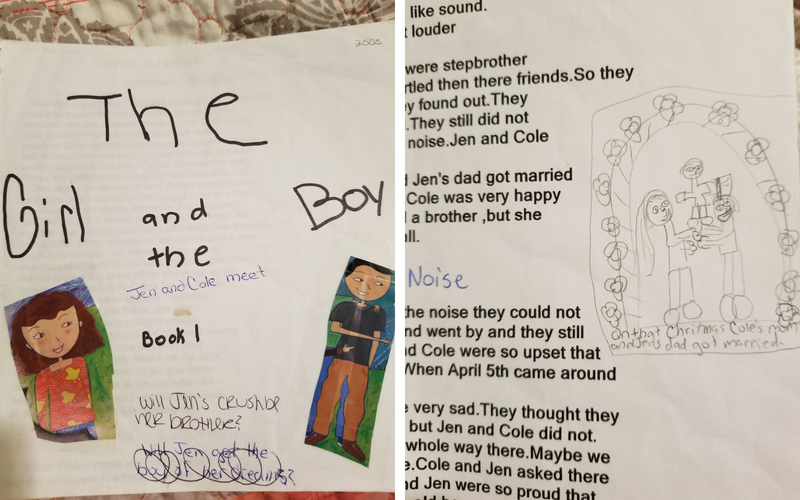 2005
The
Girl
and
the
Boy
Jen and Cole meet
Book 1
Will Jen's crush be
her brother?
Will Jen get the
boy of her dreams?
like sound.
t louder
were stepbrother
rtled then there friends.So they
ey found out.They
.They still did not
noise.Jen and Cole
d Jen's dad got married
Cole was very happy
d a brother ,but she
all.
Noise
the noise they could not
nd went by and they still
nd Cole were so upset that
When April 5th came around
e very sad.They thought they
but Jen and Cole did not.
whole way there.Maybe we
e.Cole and Jen asked there
nd Jen were so proud that
on that Chritmas Cole's mom
and Jens dad got married.